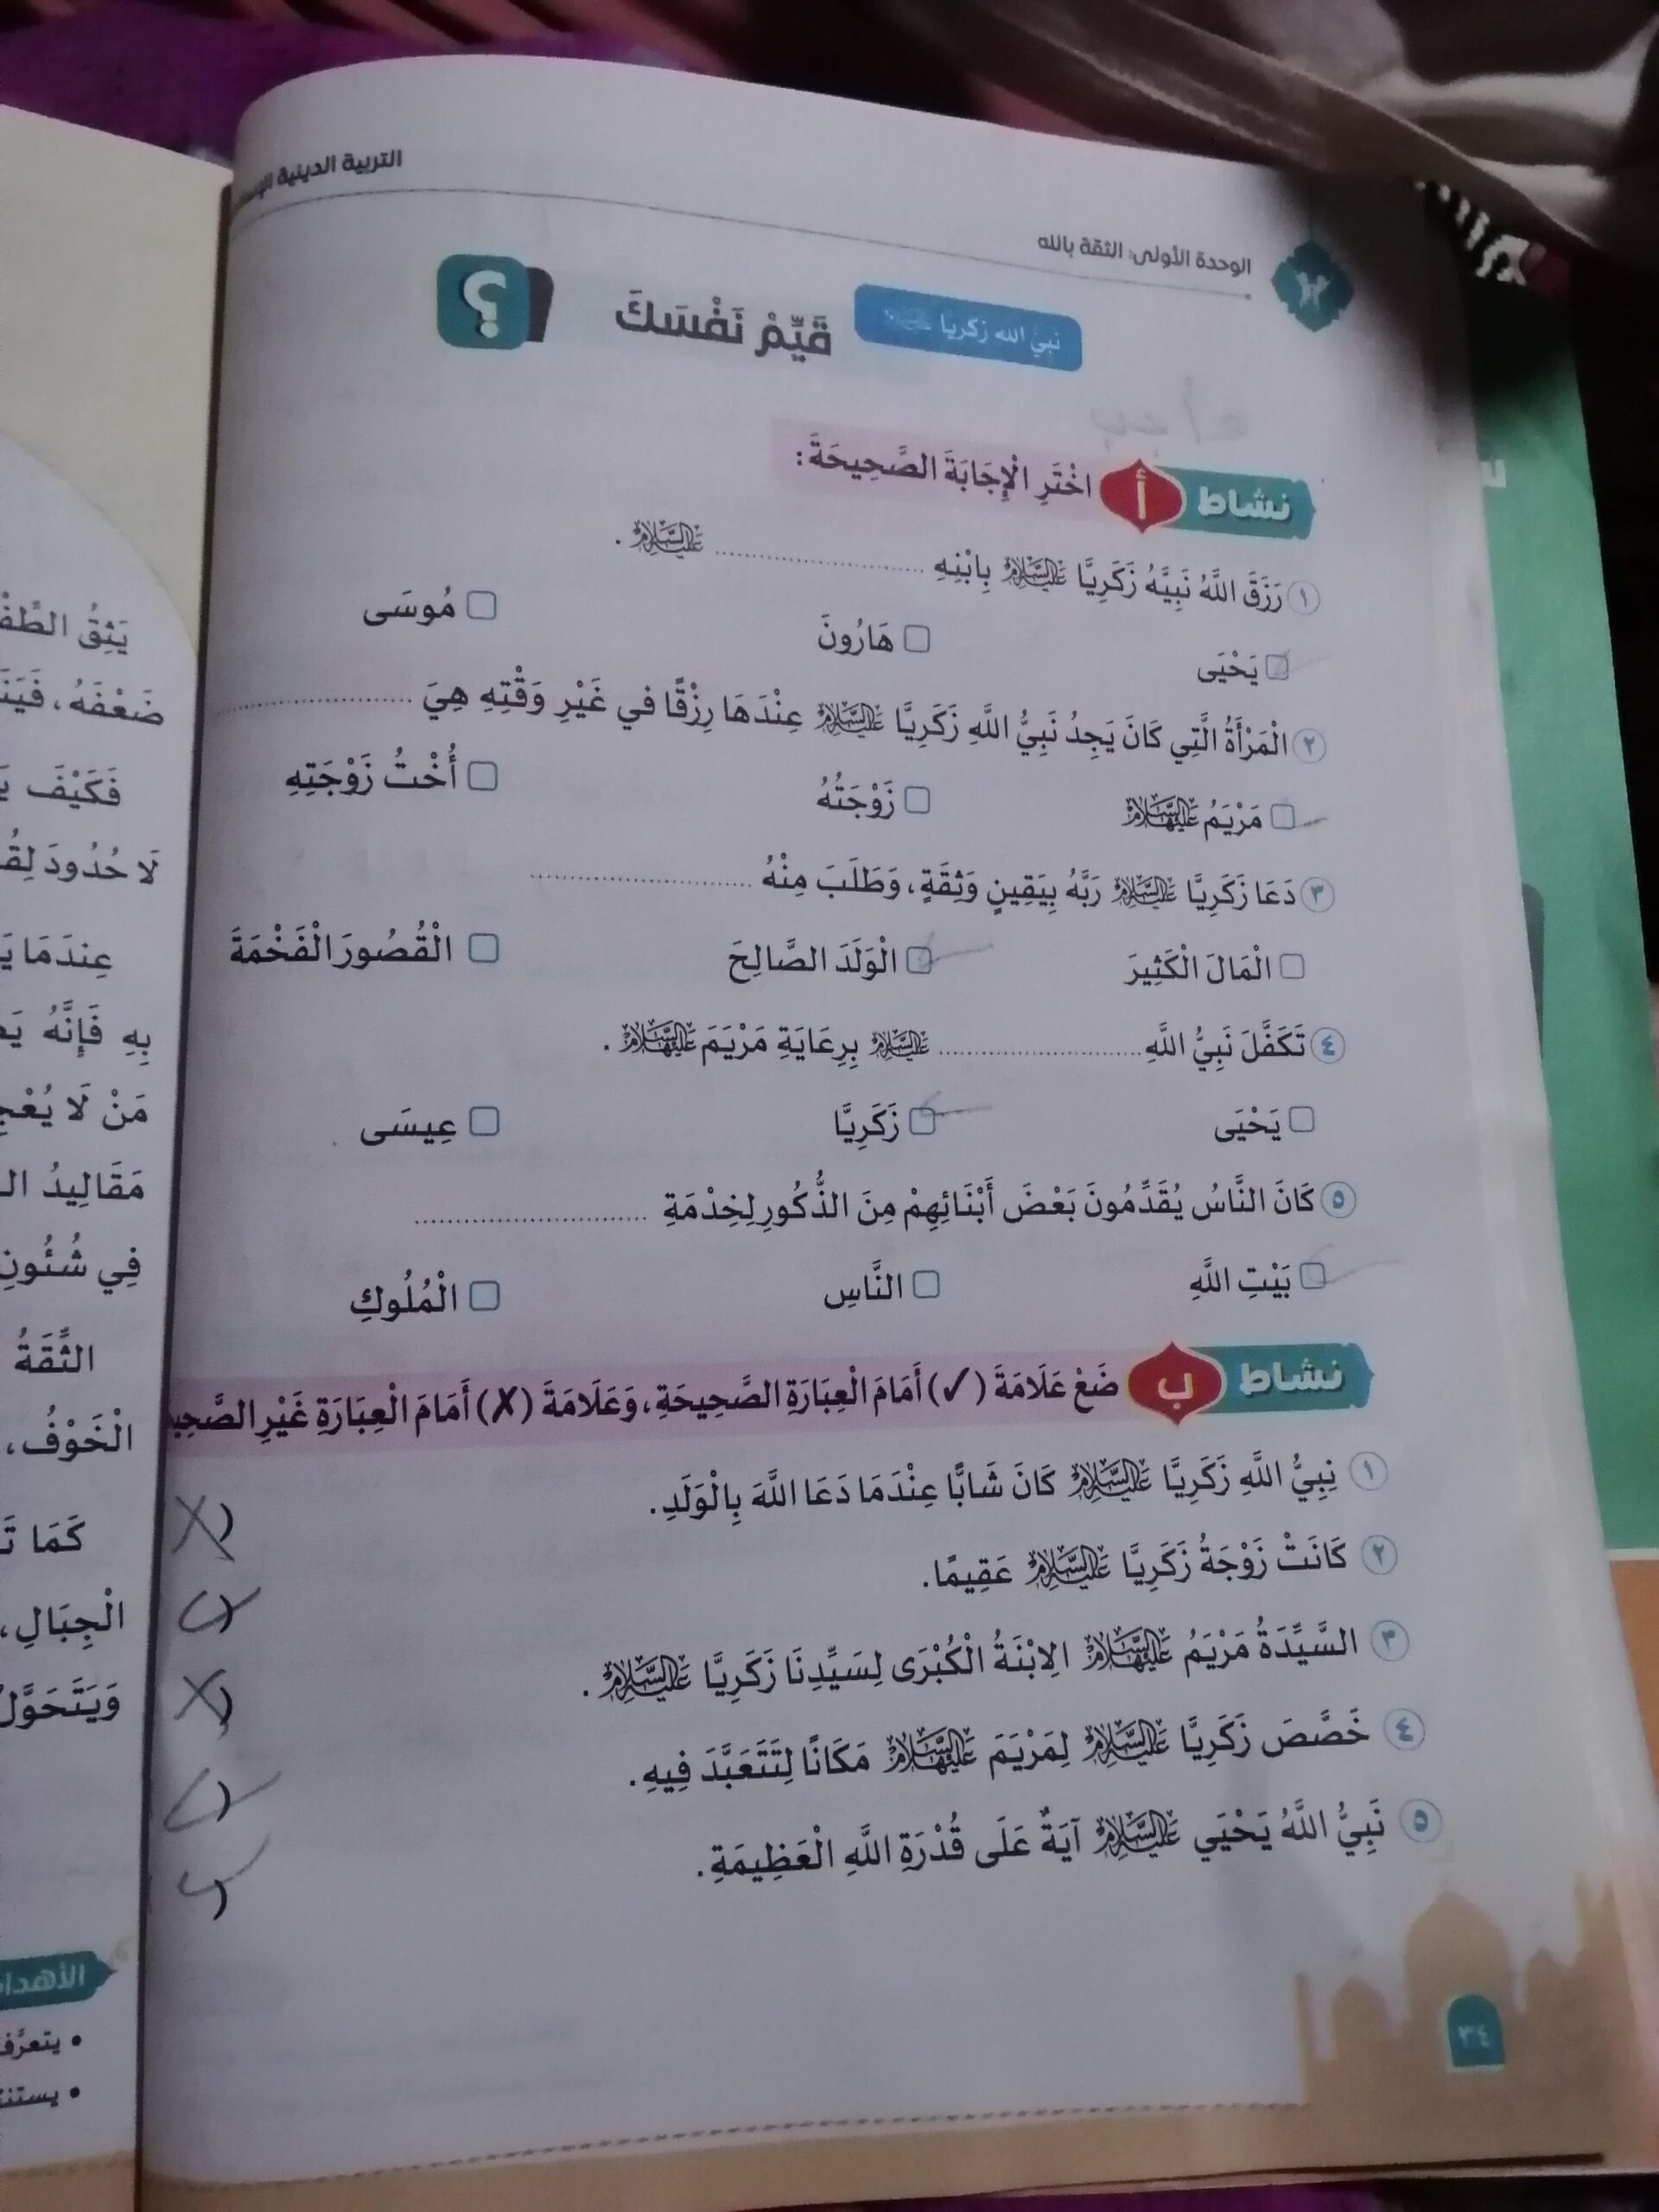 التربية الدينية
الوحدة الأولى: الثقة بالله
٢
نبي الله زكريا عليه السلام
قَيِّمْ نَفْسَكَ
؟
نشاط أ اخْتَرِ الْإِجَابَةَ الصَّحِيحَةَ:
١ رَزَقَ اللَّهُ نَبِيَّهُ زَكَرِيَّا عليه السلام بِابْنِهِ .............................. عليه السلام .
يَحْيَى هَارُونَ مُوسَى
٢ الْمَرْأَةُ الَّتِي كَانَ يَجِدُ نَبِيُّ اللَّهِ زَكَرِيَّا عليه السلام عِنْدَهَا رِزْقًا في غَيْرِ وَقْتِهِ هِيَ ..............................
مَرْيَمُ عليها السلام زَوْجَتُهُ أُخْتُ زَوْجَتِهِ
٣ دَعَا زَكَرِيَّا عليه السلام رَبَّهُ بِيَقِينٍ وَثِقَةٍ، وَطَلَبَ مِنْهُ ..............................
الْمَالَ الْكَثِيرَ الْوَلَدَ الصَّالِحَ الْقُصُورَ الْفَخْمَةَ
٤ تَكَفَّلَ نَبِيُّ اللَّهِ .............................. عليه السلام بِرِعَايَةِ مَرْيَمَ عليها السلام .
يَحْيَى زَكَرِيَّا عِيسَى
٥ كَانَ النَّاسُ يُقَدِّمُونَ بَعْضَ أَبْنَائِهِمْ مِنَ الذُّكُورِ لِخِدْمَةِ ..............................
بَيْتِ اللَّهِ النَّاسِ الْمُلُوكِ
نشاط ب ضَعْ عَلَامَةَ (✓) أَمَامَ الْعِبَارَةِ الصَّحِيحَةِ، وَعَلَامَةَ (✗) أَمَامَ الْعِبَارَةِ غَيْرِ
١ نِبِيُّ اللَّهِ زَكَرِيَّا عليه السلام كَانَ شَابًّا عِنْدَمَا دَعَا اللَّهَ بِالْوَلَدِ. ✗)
٢ كَانَتْ زَوْجَةُ زَكَرِيَّا عليه السلام عَقِيمًا. ✓)
٣ السَّيِّدَةُ مَرْيَمُ عليها السلام الِابْنَةُ الْكُبْرَى لِسَيِّدِنَا زَكَرِيَّا عليه السلام . ✗)
٤ خَصَّصَ زَكَرِيَّا عليه السلام لِمَرْيَمَ عليها السلام مَكَانًا لِتَتَعَبَّدَ فِيهِ. ✓)
٥ نَبِيُّ اللَّهُ يَحْيَي عليه السلام آيَةٌ عَلَى قُدْرَةِ اللَّهِ الْعَظِيمَةِ. ✓)
٣٤
يَثِقُ
ضَعْفَهُ،
فَكَيْفَ
لَا حُدُودَ
عِندَمَا
بِهِ فَإِنَّهُ
مَنْ لَا
مَقَالِيدُ
فِي
الثِّقَةُ
الْخَوْفُ،
كَمَا
الْجِبَالِ،